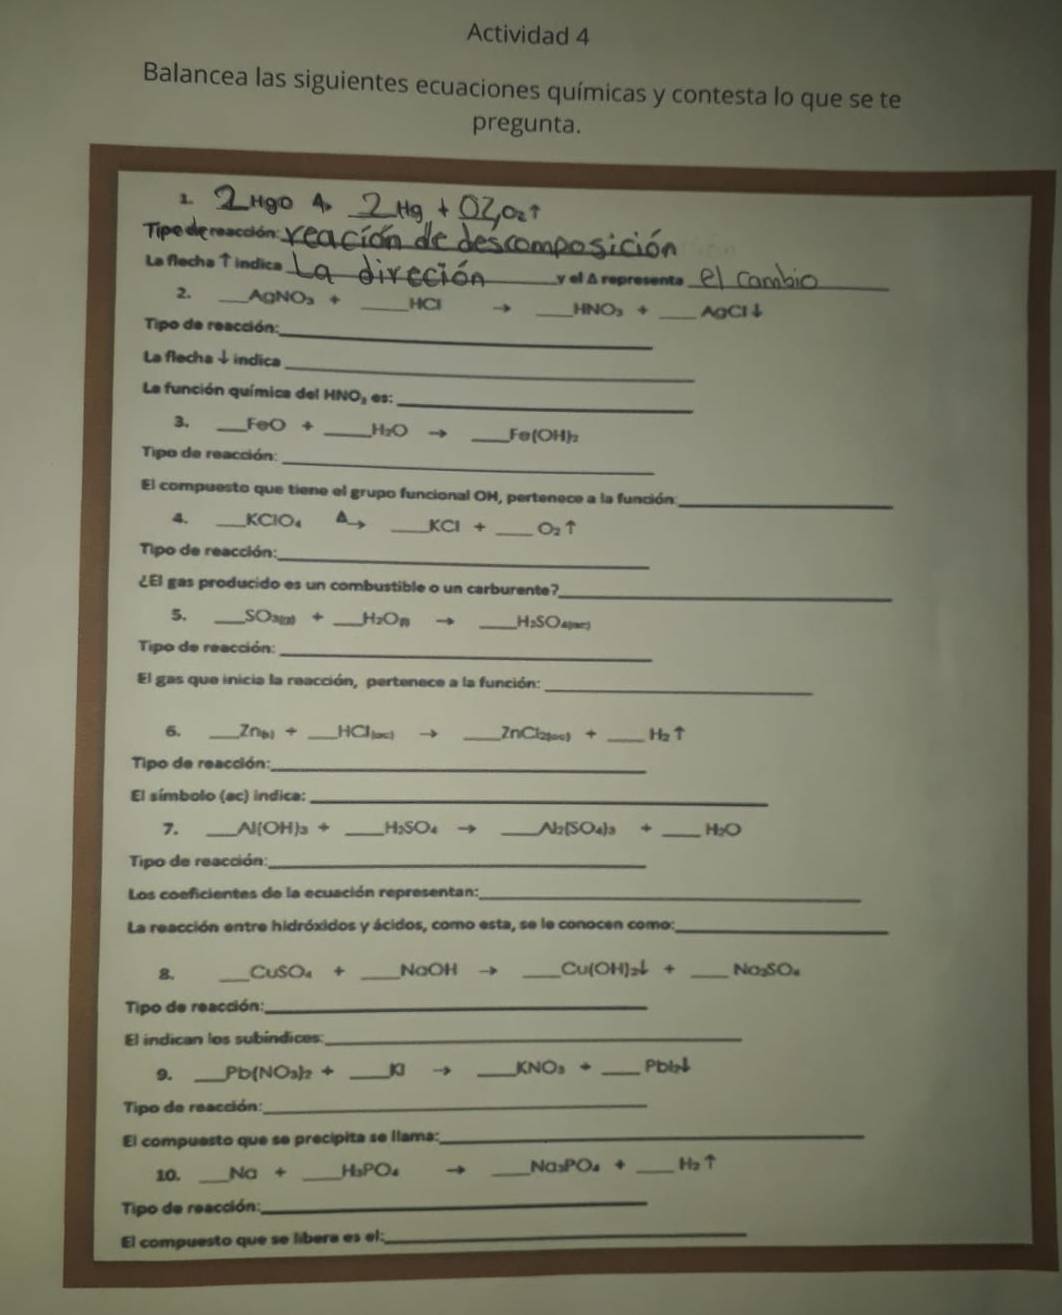 Actividad 4
Balancea las siguientes ecuaciones químicas y contesta lo que se te
pregunta.
1. 2 HgO Δ→ 2 Hg + O2, O₂↑
Tipo de reacción: reación de descomposición
La flecha ↑ indica La direción y el Δ representa el cambio
2. ___AgNO₃ + ___HCl → ___HNO₃ + ___AgCl↓
Tipo de reacción:___
La flecha ↓ indica___
La función química del HNO₃ es:___
3. ___FeO + ___H₂O → ___Fe(OH)₂
Tipo de reacción:___
El compuesto que tiene el grupo funcional OH, pertenece a la función:___
4. ___KClO₄ Δ→ ___KCl + ___O₂↑
Tipo de reacción:___
¿El gas producido es un combustible o un carburente?___
5. ___SO₃(g) + ___H₂O(l) → ___H₂SO₄(ac)
Tipo de reacción:___
El gas que inicia la reacción, pertenece a la función:___
6. ___Zn(s) + ___HCl(ac) → ___ZnCl₂(ac) + ___H₂↑
Tipo de reacción:___
El símbolo (ac) indica:___
7. ___Al(OH)₃ + ___H₂SO₄ → ___Al₂(SO₄)₃ + ___H₂O
Tipo de reacción:___
Los coeficientes de la ecuación representan:___
La reacción entre hidróxidos y ácidos, como esta, se le conocen como:___
8. ___CuSO₄ + ___NaOH → ___Cu(OH)₂↓ + ___Na₂SO₄
Tipo de reacción:___
El indican los subíndices:___
9. ___Pb(NO₃)₂ + ___KI → ___KNO₃ + ___PbI₂↓
Tipo de reacción:___
El compuesto que se precipita se llama:___
10. ___Na + ___H₃PO₄ → ___Na₃PO₄ + ___H₂↑
Tipo de reacción:___
El compuesto que se libera es el:___